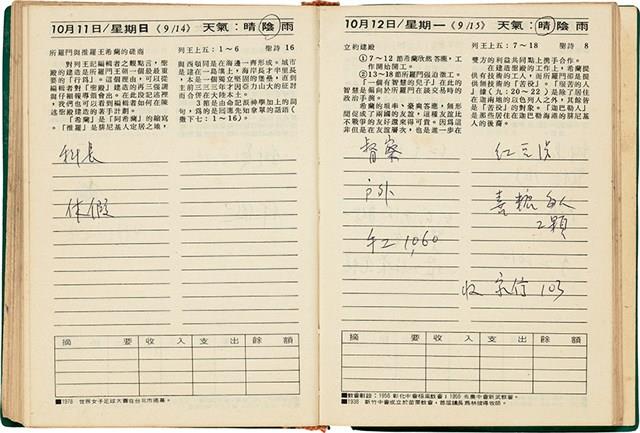 10月11日/星期日 (9/14) 天氣:晴陰雨
所羅門與推羅王希蘭的磋商 列王上五:1~6 聖詩 16
對列王記編輯者之觀點言,聖
殿的建造是所羅門王朝一個最重
要的「行爲」。這個推論,可以從
編輯者對「聖殿」建造的再三強調
與仔細報導領會出。在
,我們也可以看到編輯者如何在陳
述聖殿建造的著手計劃。
「希蘭」是「阿希蘭」的縮寫
。「推羅」是腓尼基人定居之地,
與西頓同是在海邊一齊形成。城市
是建在一島 上,
,本是一獨立堅固的堡壘,直到
主前三三三年才因亞力山大的征討
而合併在大陸本土。
3節是由命記 學加上的詞
句,爲的是回應先知拿單的話語(
撒下七:1~16)。
科長
休假
摘要 收入 支出 餘額
■1978 世界女子足球大賽在台北市揭幕。
10月12日/星期一 (9/15) 天氣:晴陰雨
立約建殿 列王上五:7~18 聖詩 8
①7~12 節希蘭欣然答應,工
作開始開工。
②13~18節所羅門強迫徵工。
「一個有智慧的兒子」在此的
智慧是偏向於所羅門在談交易時的
政治手腕。
希蘭的坦率、豪爽答應,無形
間促成了兩國的友誼,這種友誼比
不戰爭的友好還來得可貴。因爲這
非但是在友誼層次,也是進一步在
雙方的利益共同點上携手合作。
在建造聖殿的工作上,希蘭提
供有技術的工人,而所羅門卻是提
供無技術的「苦役」。「很苦的人
」據(九:20~22)是除了居住
在迦南地的以色列人之外,其餘皆
是「苦役」的對象。「迦巴勒人」
是那些居住在迦巴勒海港的腓尼基
人後裔。
督察
戶外
午工 1,060
紅豆湯
喜糖 每人
2顆
收 京竹 103
摘要 收入 支出 餘額